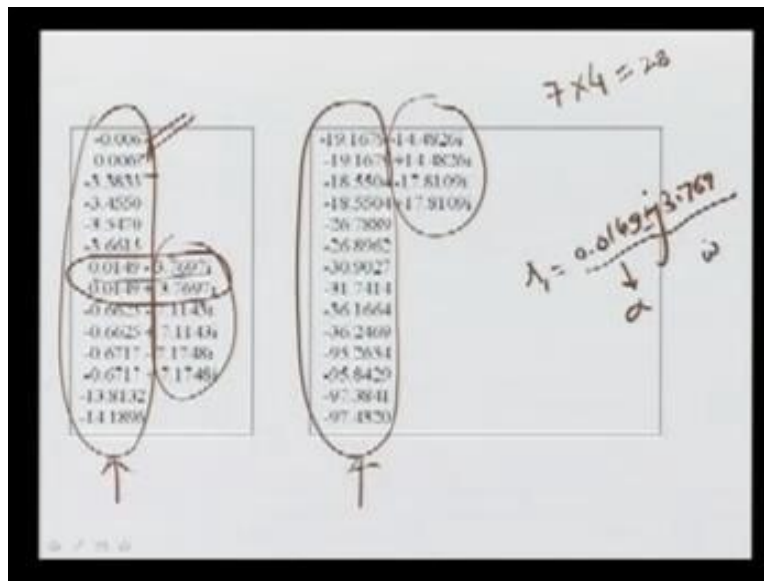 7 x 4 = 28
-0.006
0.006
-3.4550
0.0149 - 3.7697i
0.0149 + 3.7697i
-0.6625 - 7.1143i
-0.6625 + 7.1143i
-0.6717 - 7.1748i
-0.6717 + 7.1748i
-13.8132
-14.1896
-19.1679 -14.4826i
-19.1679 +14.4826i
-18.5504 -17.8109i
-18.5504 +17.8109i
-26.7889
-26.8962
-30.9027
-31.7414
-36.1664
-36.2469
-95.8429
-97.3841
-97.4820
α
ω